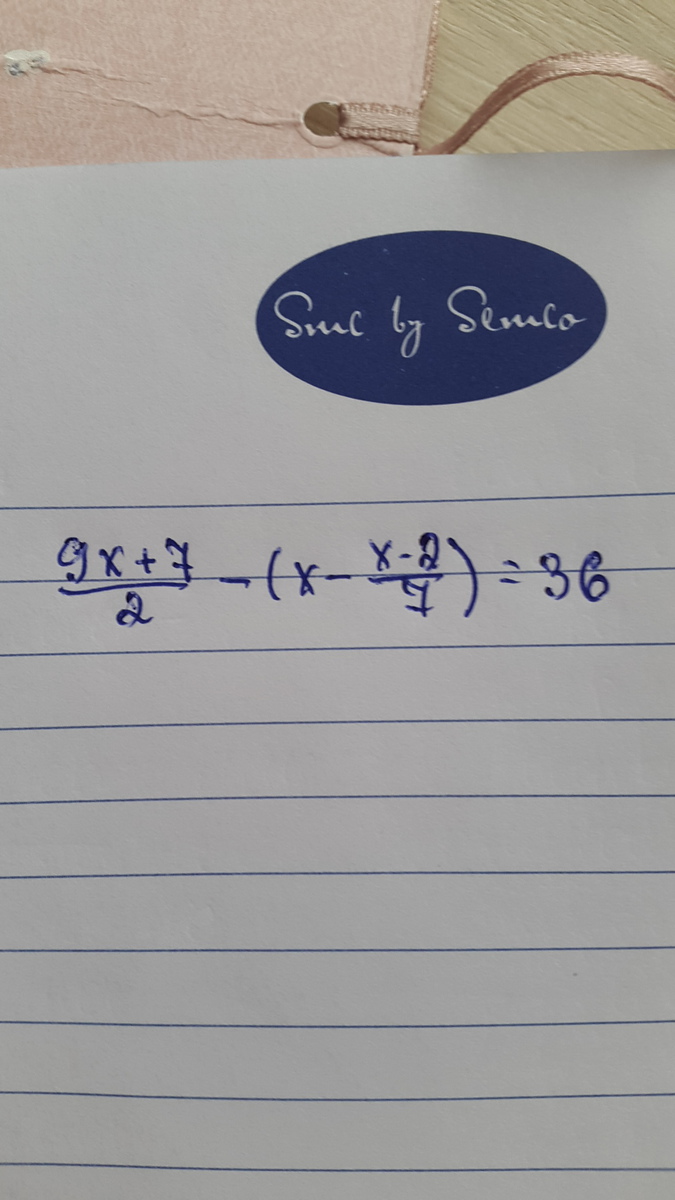 Smc by Semco
(9x+7)/2 - (x - (x-2)/7) = 36